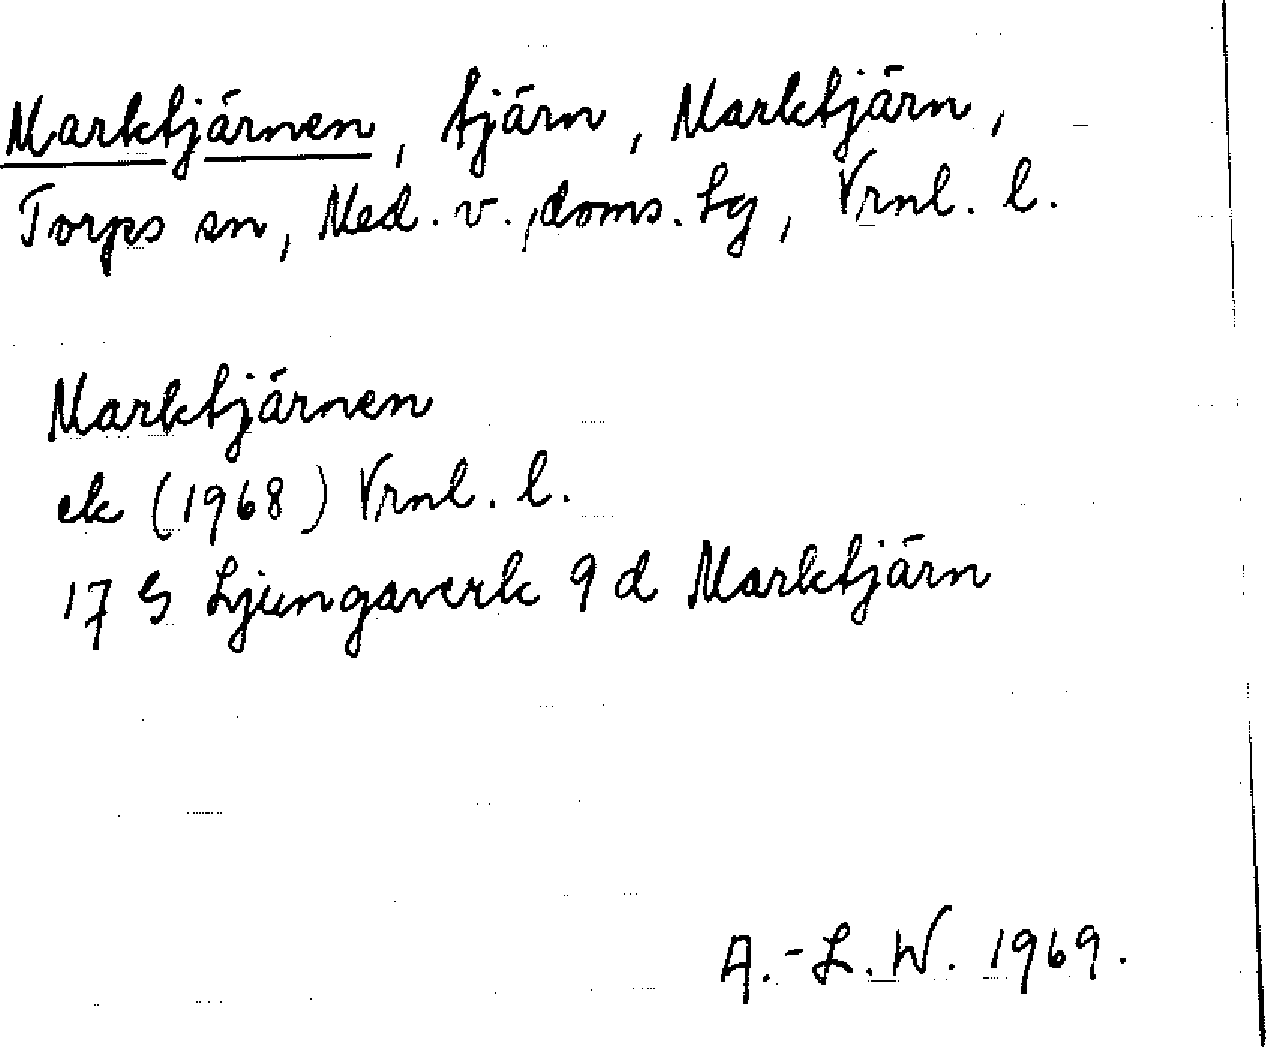 Marktjärnen, tjärn, Marktjärn,
Torps sn, Med. v., doms. tg, Vrnl. l.
Marktjärnen
ek (1968) Vrnl. l.
17 G Ljungaverk 9 d Marktjärn
A.-L.W. 1969.